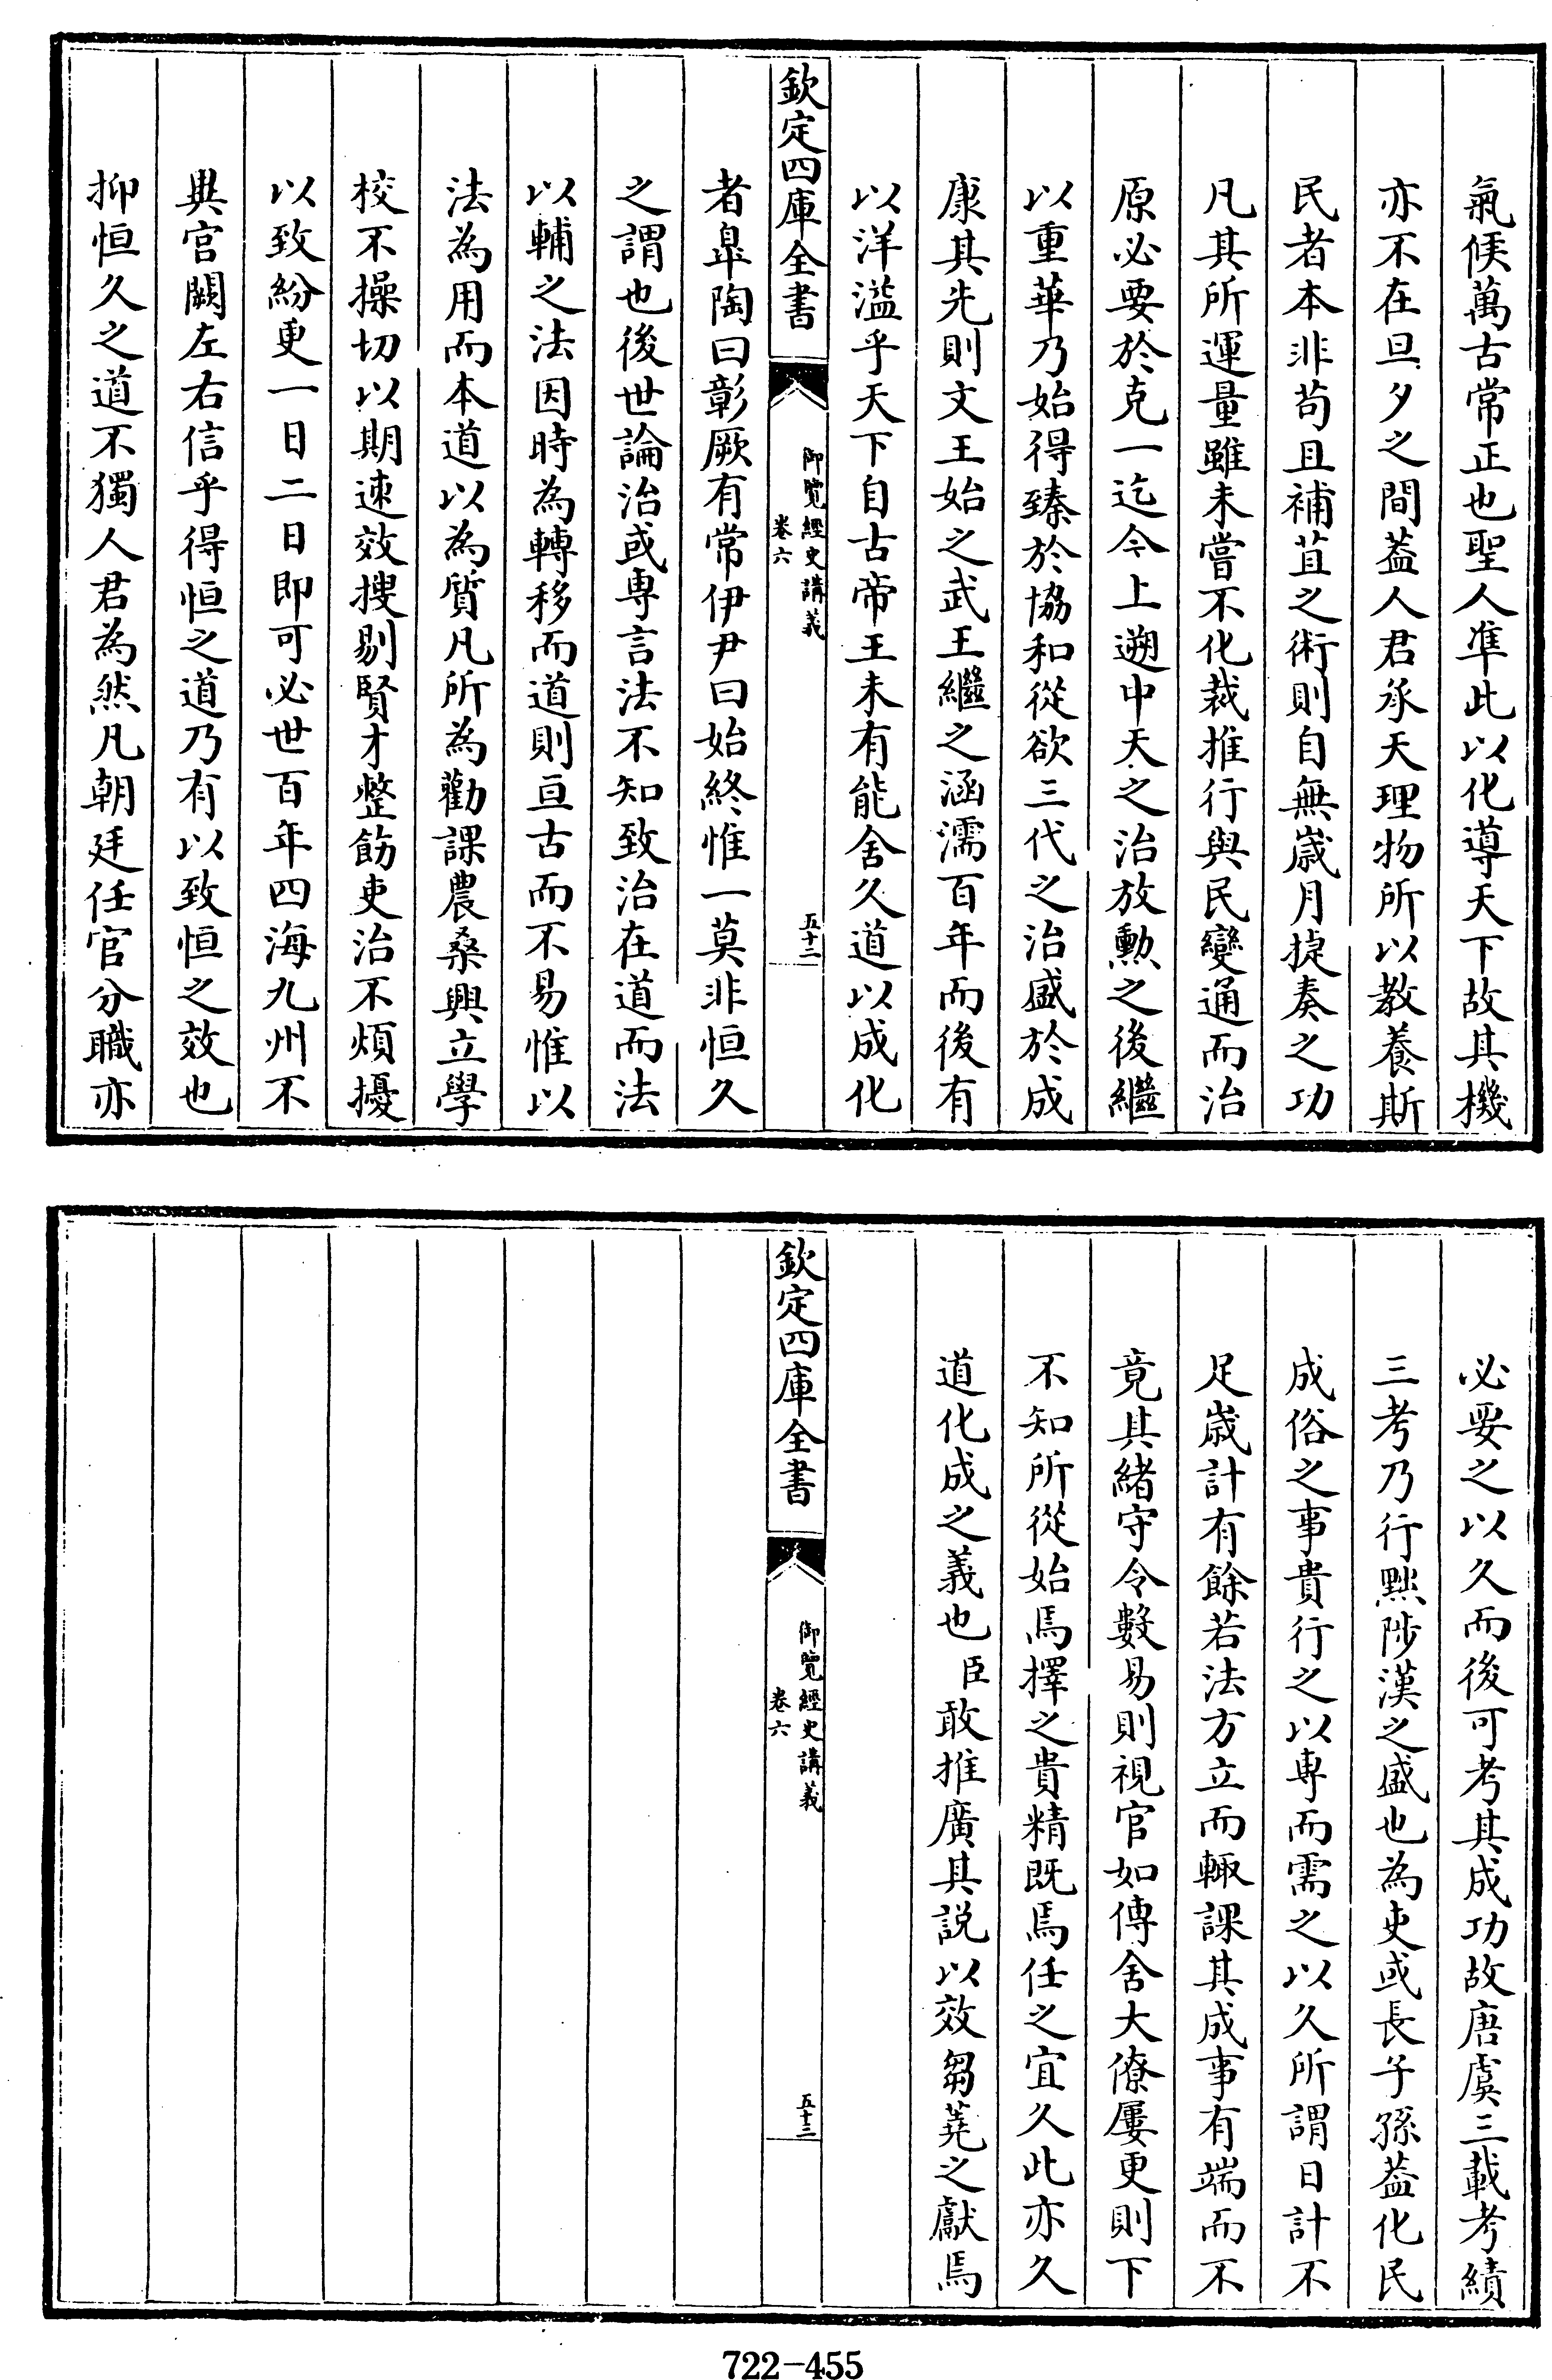 氣候萬古常正也聖人準此以化導天下故其機
亦不在旦夕之間葢人君承天理物所以教養斯
民者本非苟且補苴之術則自無嵗月捷奏之功
凡其所運量雖未嘗不化裁推行與民變通而治
原必要於克一迄今上遡中天之治放勲之後繼
以重華乃始得臻於協和從欲三代之治盛於成
康其先則文王始之武王繼之涵濡百年而後有
以洋溢乎天下自古帝王未有能舍久道以成化
欽定四庫全書
御覽經史講義
卷六
五十二
者臯陶曰彰厥有常伊尹曰始終惟一莫非恒久
之謂也後世論治或専言法不知致治在道而法
以輔之法因時為轉移而道則亘古而不易惟以
法為用而本道以為質凡所為勸課農桑興立學
校不操切以期速效搜剔賢才整飭吏治不煩擾
以致紛更一日二日即可必世百年四海九州不
異宫闕左右信乎得恒之道乃有以致恒之效也
抑恒久之道不獨人君為然凡朝廷任官分職亦
必要之以久而後可考其成功故唐虞三載考績
三考乃行黜陟漢之盛也為吏或長子孫葢化民
成俗之事貴行之以専而需之以久所謂日計不
足嵗計有餘若法方立而輙課其成事有端而不
竟其緒守令數易則視官如傳舍大僚屢更則下
不知所從始焉擇之貴精既焉任之宜久此亦久
道化成之義也臣敢推廣其説以效芻蕘之獻焉
欽定四庫全書
御覽經史講義
卷六
五十三
722-455